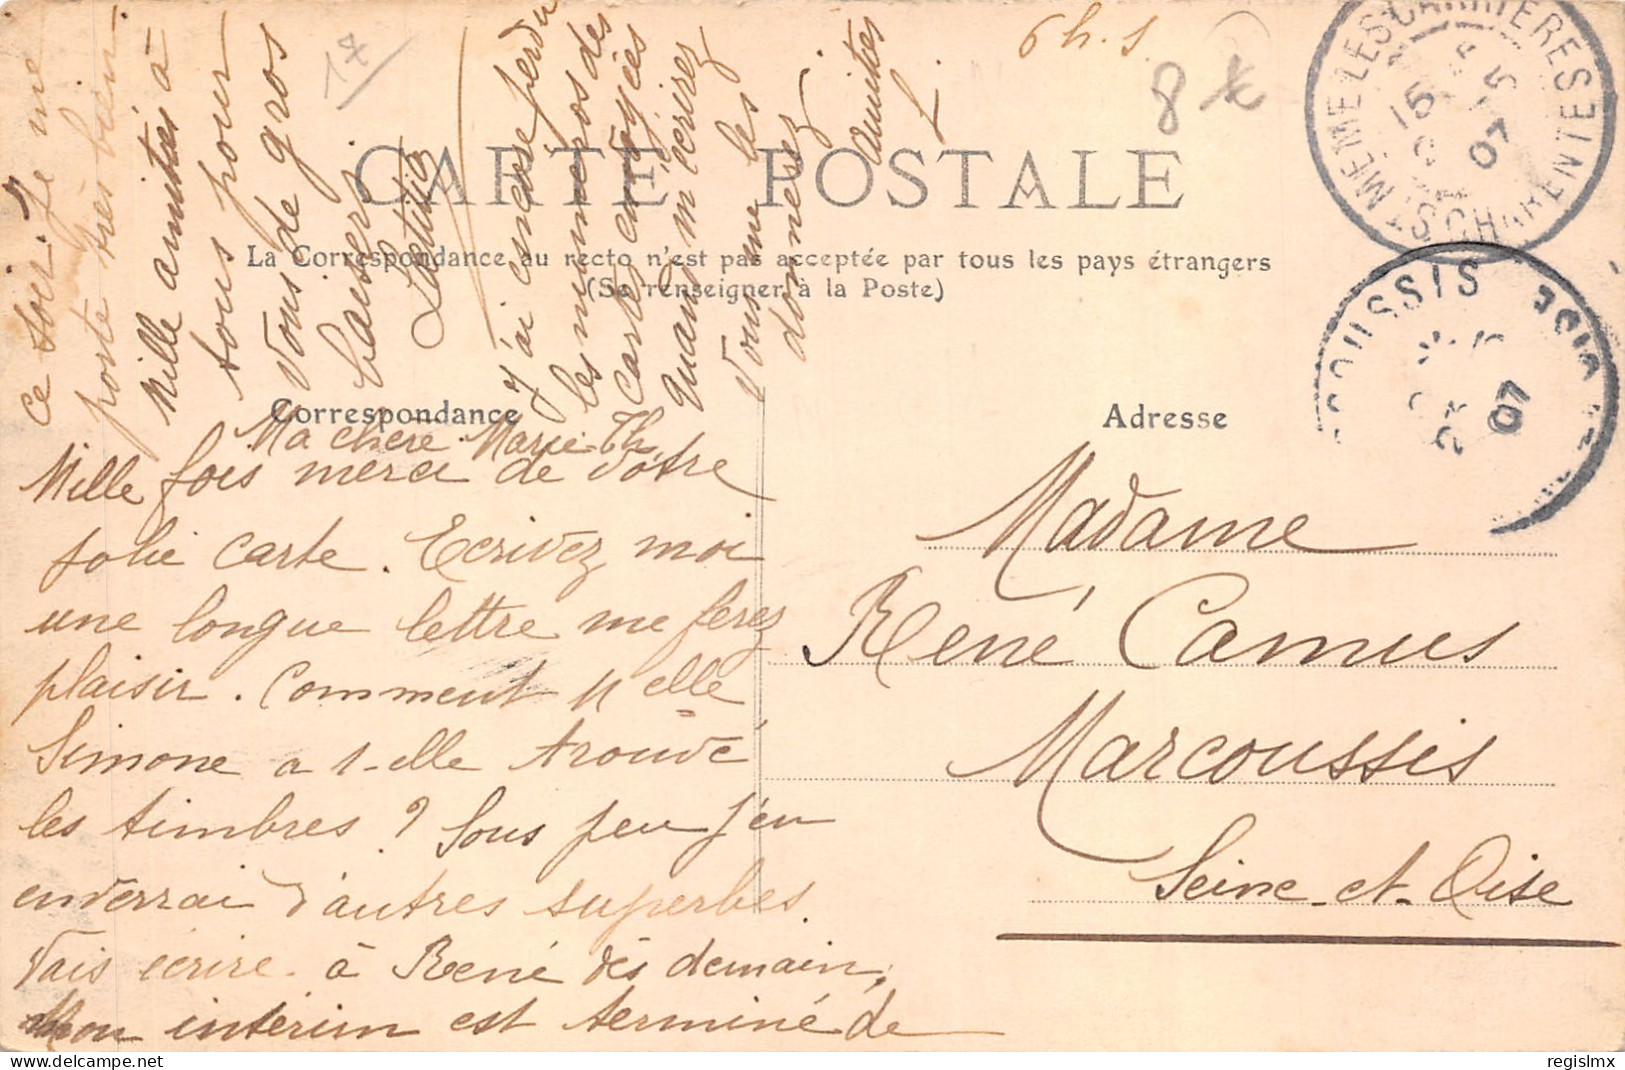 CARTE POSTALE
La Correspondance au recto n'est pas acceptée par tous les pays étrangers
(Se renseigner à la Poste)
Correspondance
Adresse
Ma chère Marie Th.
Mille fois merci de votre
jolie carte. Ecrivez moi
une longue lettre me ferez
plaisir. Comment Melle
Simone a t-elle trouvé
les timbres ? Sous peu j'en
enverrai d'autres superbes.
Vais écrire à René dès demain,
Mon intérim est terminé de
ce soir. Je me
porte très bien.
Mille amitiés à
tous pour
Vous de gros
baisers
Laetitia
J'ai encore perdu
les numéros des
cartes envoyées
Quand m'écrirez
Vous me les
donnez.
Amitiés
L
17
6h. s.
8
Madame
René Camus
Marcoussis
Seine-et-Oise
ST MEME LES CARRIERES
CHARENTE
15
07
MARCOUSSIS
07
regislmx